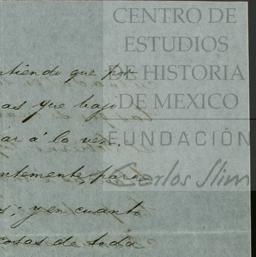 CENTRO DE
ESTUDIOS
DE HISTORIA
DE MEXICO
FUNDACIÓN
Carlos Slim
tiendo que por
as que bajo
ar á la ven
ntemente pare
s; y en cuanto
cosas de toda